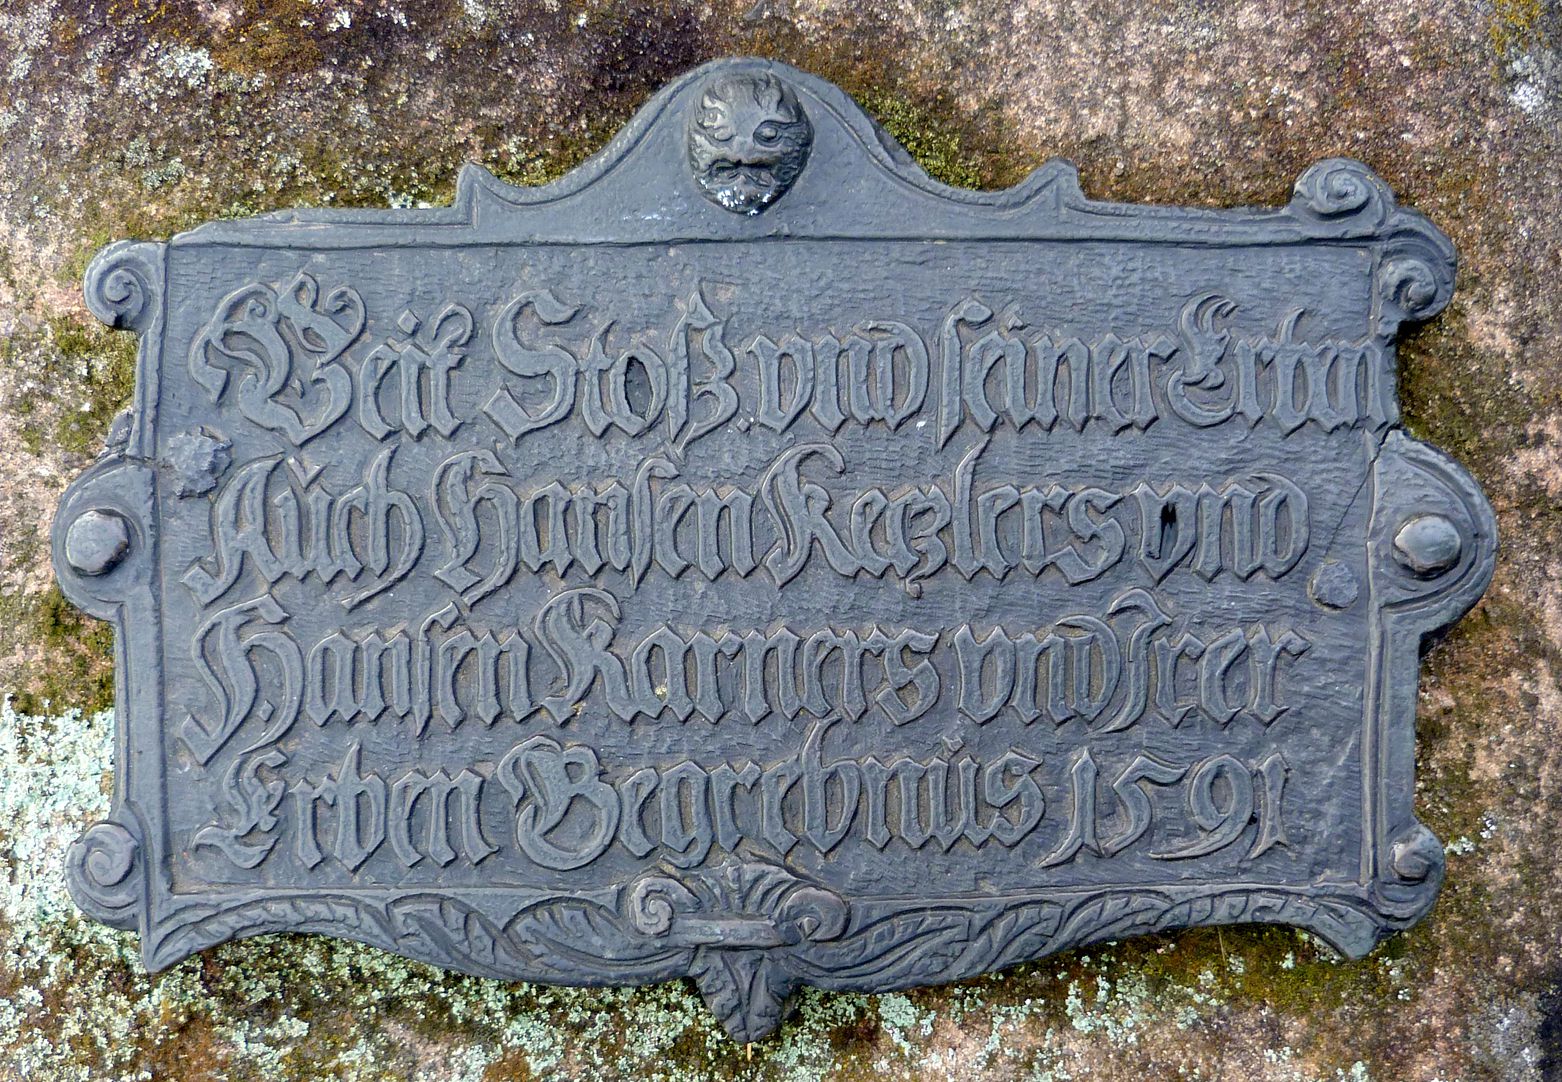 Veit Stoß vnd seiner Erbn
Auch Hansen Keczlers vnd
Hansen Karners vnd Irer
Erben Begrebnus 1591